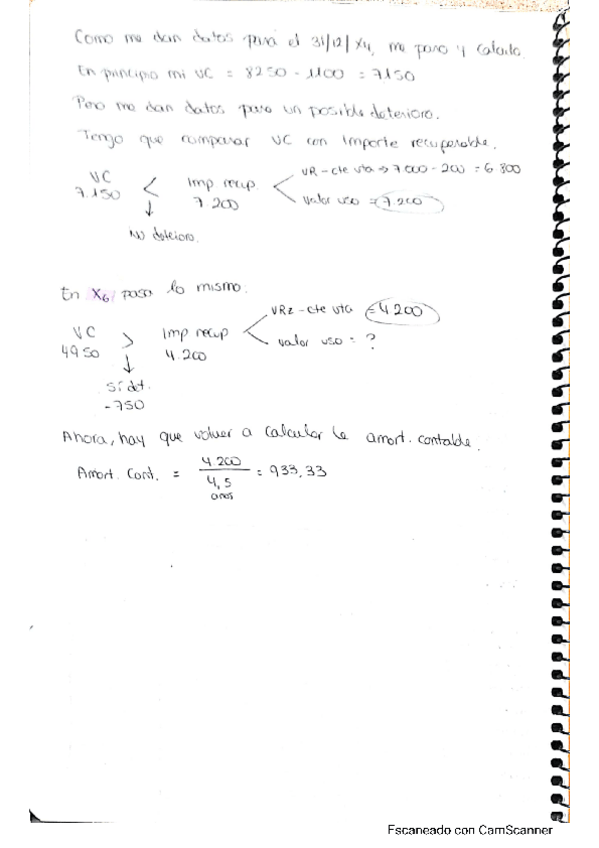 Como me dan datos para el 31/12/X4, me paro y calculo.
En principio mi VC = 8250 - 1100 = 7150
Pero me dan datos para un posible deterioro.
Tengo que comparar VC con importe recuperable.
VC 7.150 < Imp recup 7.200
VR - cte vta => 7000 - 200 = 6 800
valor uso = 7.200
No deterioro.
En X6 pasa lo mismo:
VC 4950 > Imp recup 4.200
VRz - cte vta = 4 200
valor uso = ?
Sí det.
-750
Ahora, hay que volver a calcular la amort. contable.
Amort. Cont. = 4 200 / 4,5 años = 933,33
Escaneado con CamScanner